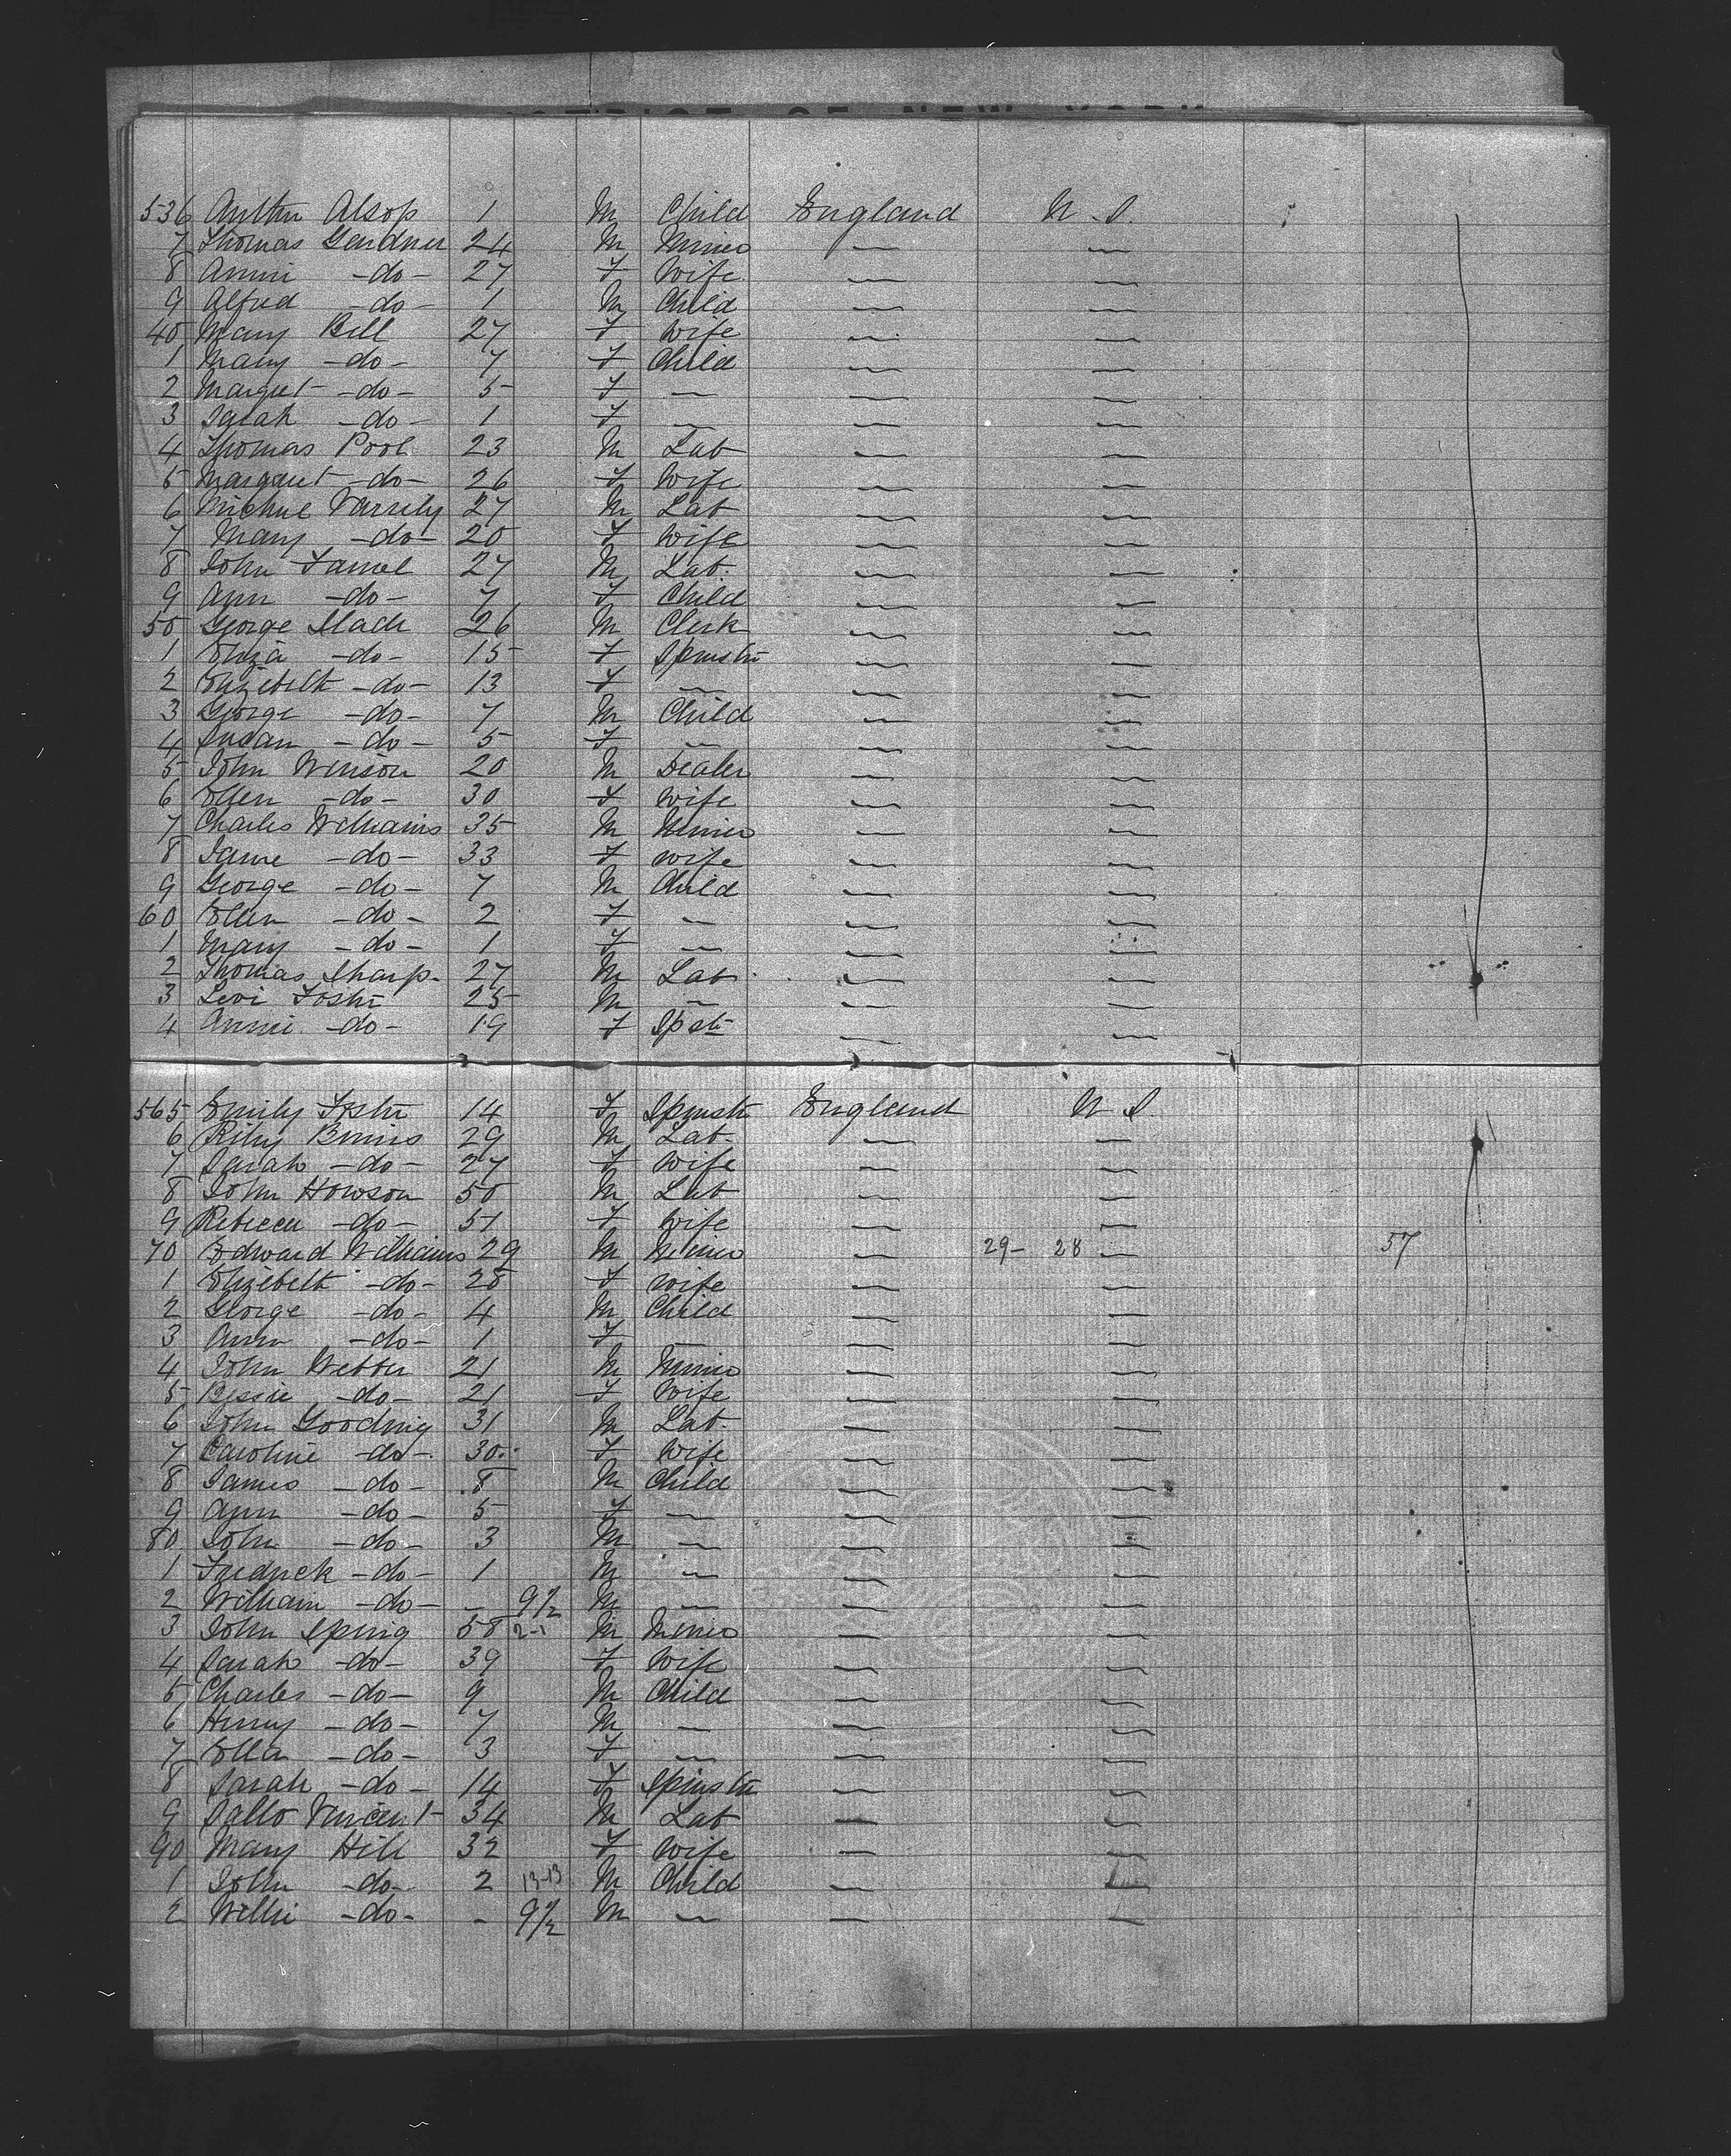 DISTRICT OF NEW YORK
536 Arthur Alsop 1 M Child England U.S.
7 Thomas Gardner 24 M Miner — —
8 Annie -do- 27 F Wife — —
9 Alfred -do- 1 M Child — —
40 Mary Bell 27 F Wife — —
1 Mary -do- 7 F Child — —
2 Margret -do- 5 F — — —
3 Sarah -do- 1 F — — —
4 Thomas Pool 23 M Lab — —
5 Margaret -do- 26 F Wife — —
6 Michael 27 M Lab — —
7 Mary -do- 20 F Wife — —
8 John 27 M Lab. — —
9 Ann -do- 7 F Child — —
50 George Slack 26 M Clerk — —
1 Eliza -do- 15 F Spinstr — —
2 Elizebeth -do- 13 F — — —
3 George -do- 7 M Child — —
4 Susan -do- 5 F — — —
5 John Winson 20 M Dealer — —
6 Ellen -do- 30 F Wife — —
7 Charles Williams 35 M Miner — —
8 Jane -do- 33 F Wife — —
9 George -do- 7 M Child — —
60 Ellen -do- 2 F — — —
1 Mary -do- 1 F — — —
2 Thomas Sharp 27 M Lab — —
3 Levi Fostr 25 M — — —
4 Annie -do- 19 F Spstr — —
565 Emily Fostr 14 F Spinstr England U.S.
6 Riley 29 M Lab. — —
7 Sarah -do- 27 F Wife — —
8 John Howson 50 M Lab — —
9 Rebecca -do- 51 F Wife — —
70 Edward Williams 29 M Miner — 29- 28 — 57
1 Elizebeth -do- 28 F Wife — —
2 George -do- 4 M Child — —
3 Ann -do- 1 F — — —
4 John Webber 21 M Miner — —
5 Bessie -do- 21 F Wife — —
6 John Gooding 31 M Lab. — —
7 Caroline -do- 30 F Wife — —
8 James -do- 8 M Child — —
9 Ann -do- 5 F — — —
80 John -do- 3 M — — —
1 Fredrick -do- 1 M — — —
2 William -do- - 9/12 M — — —
3 John Spring 58 2-1 M Miner — —
4 Sarah -do- 39 F Wife — —
5 Charles -do- 9 M Child — —
6 Henry -do- 7 M — — —
7 Ella -do- 3 F — — —
8 Sarah -do- 14 F Spinstr — —
9 Vincent 34 M Lab — —
90 Mary Hill 32 F Wife — —
1 John -do- 2 13-13 M Child — —
2 Willie -do- - 9/12 M — — —